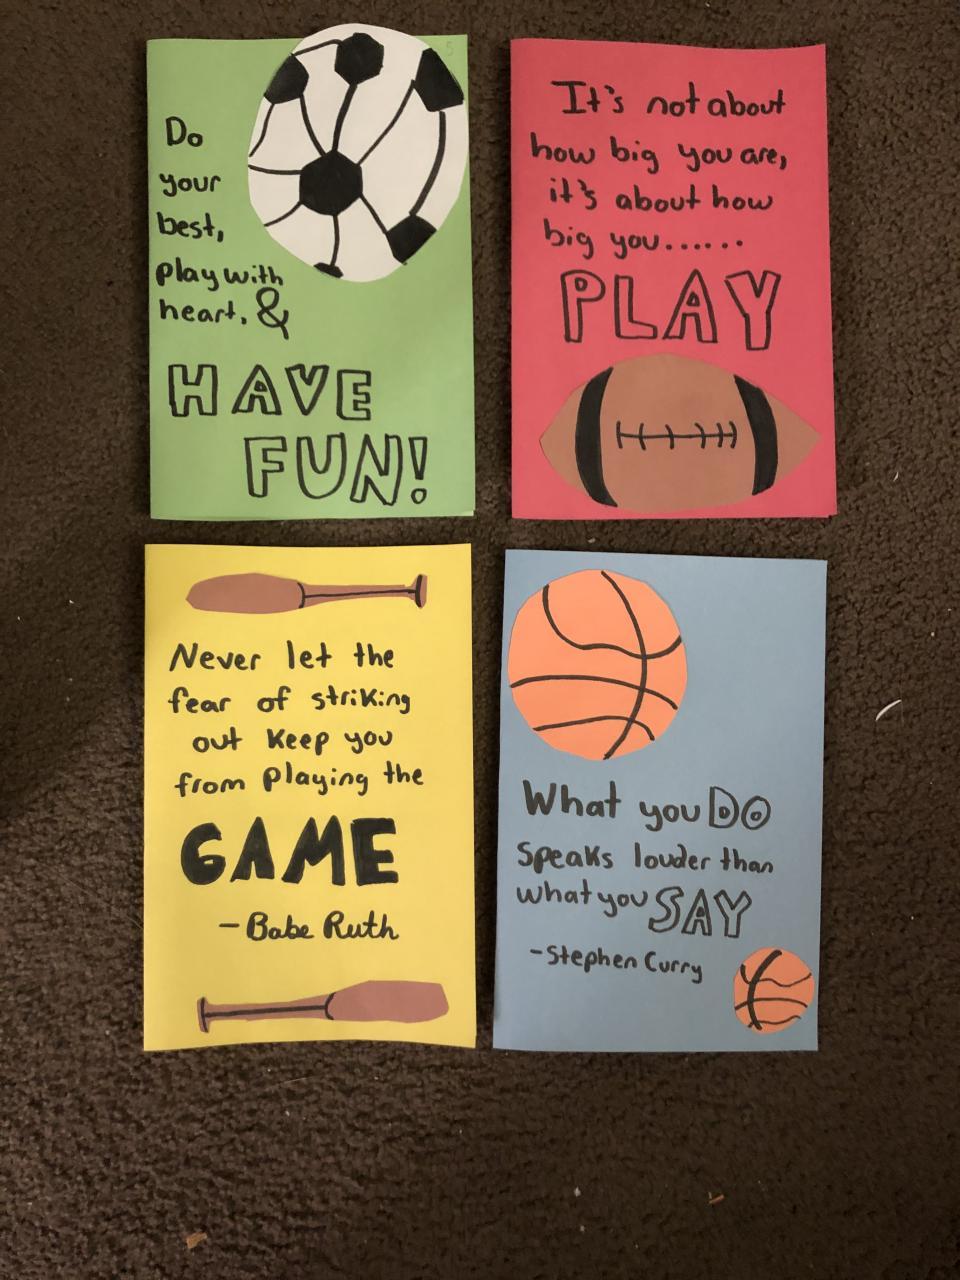 Do
your
best,
play with
heart, &
HAVE
FUN!
It's not about
how big you are,
it's about how
big you......
PLAY
Never let the
fear of striking
out keep you
from playing the
GAME
- Babe Ruth
What you DO
speaks louder than
what you SAY
-Stephen Curry